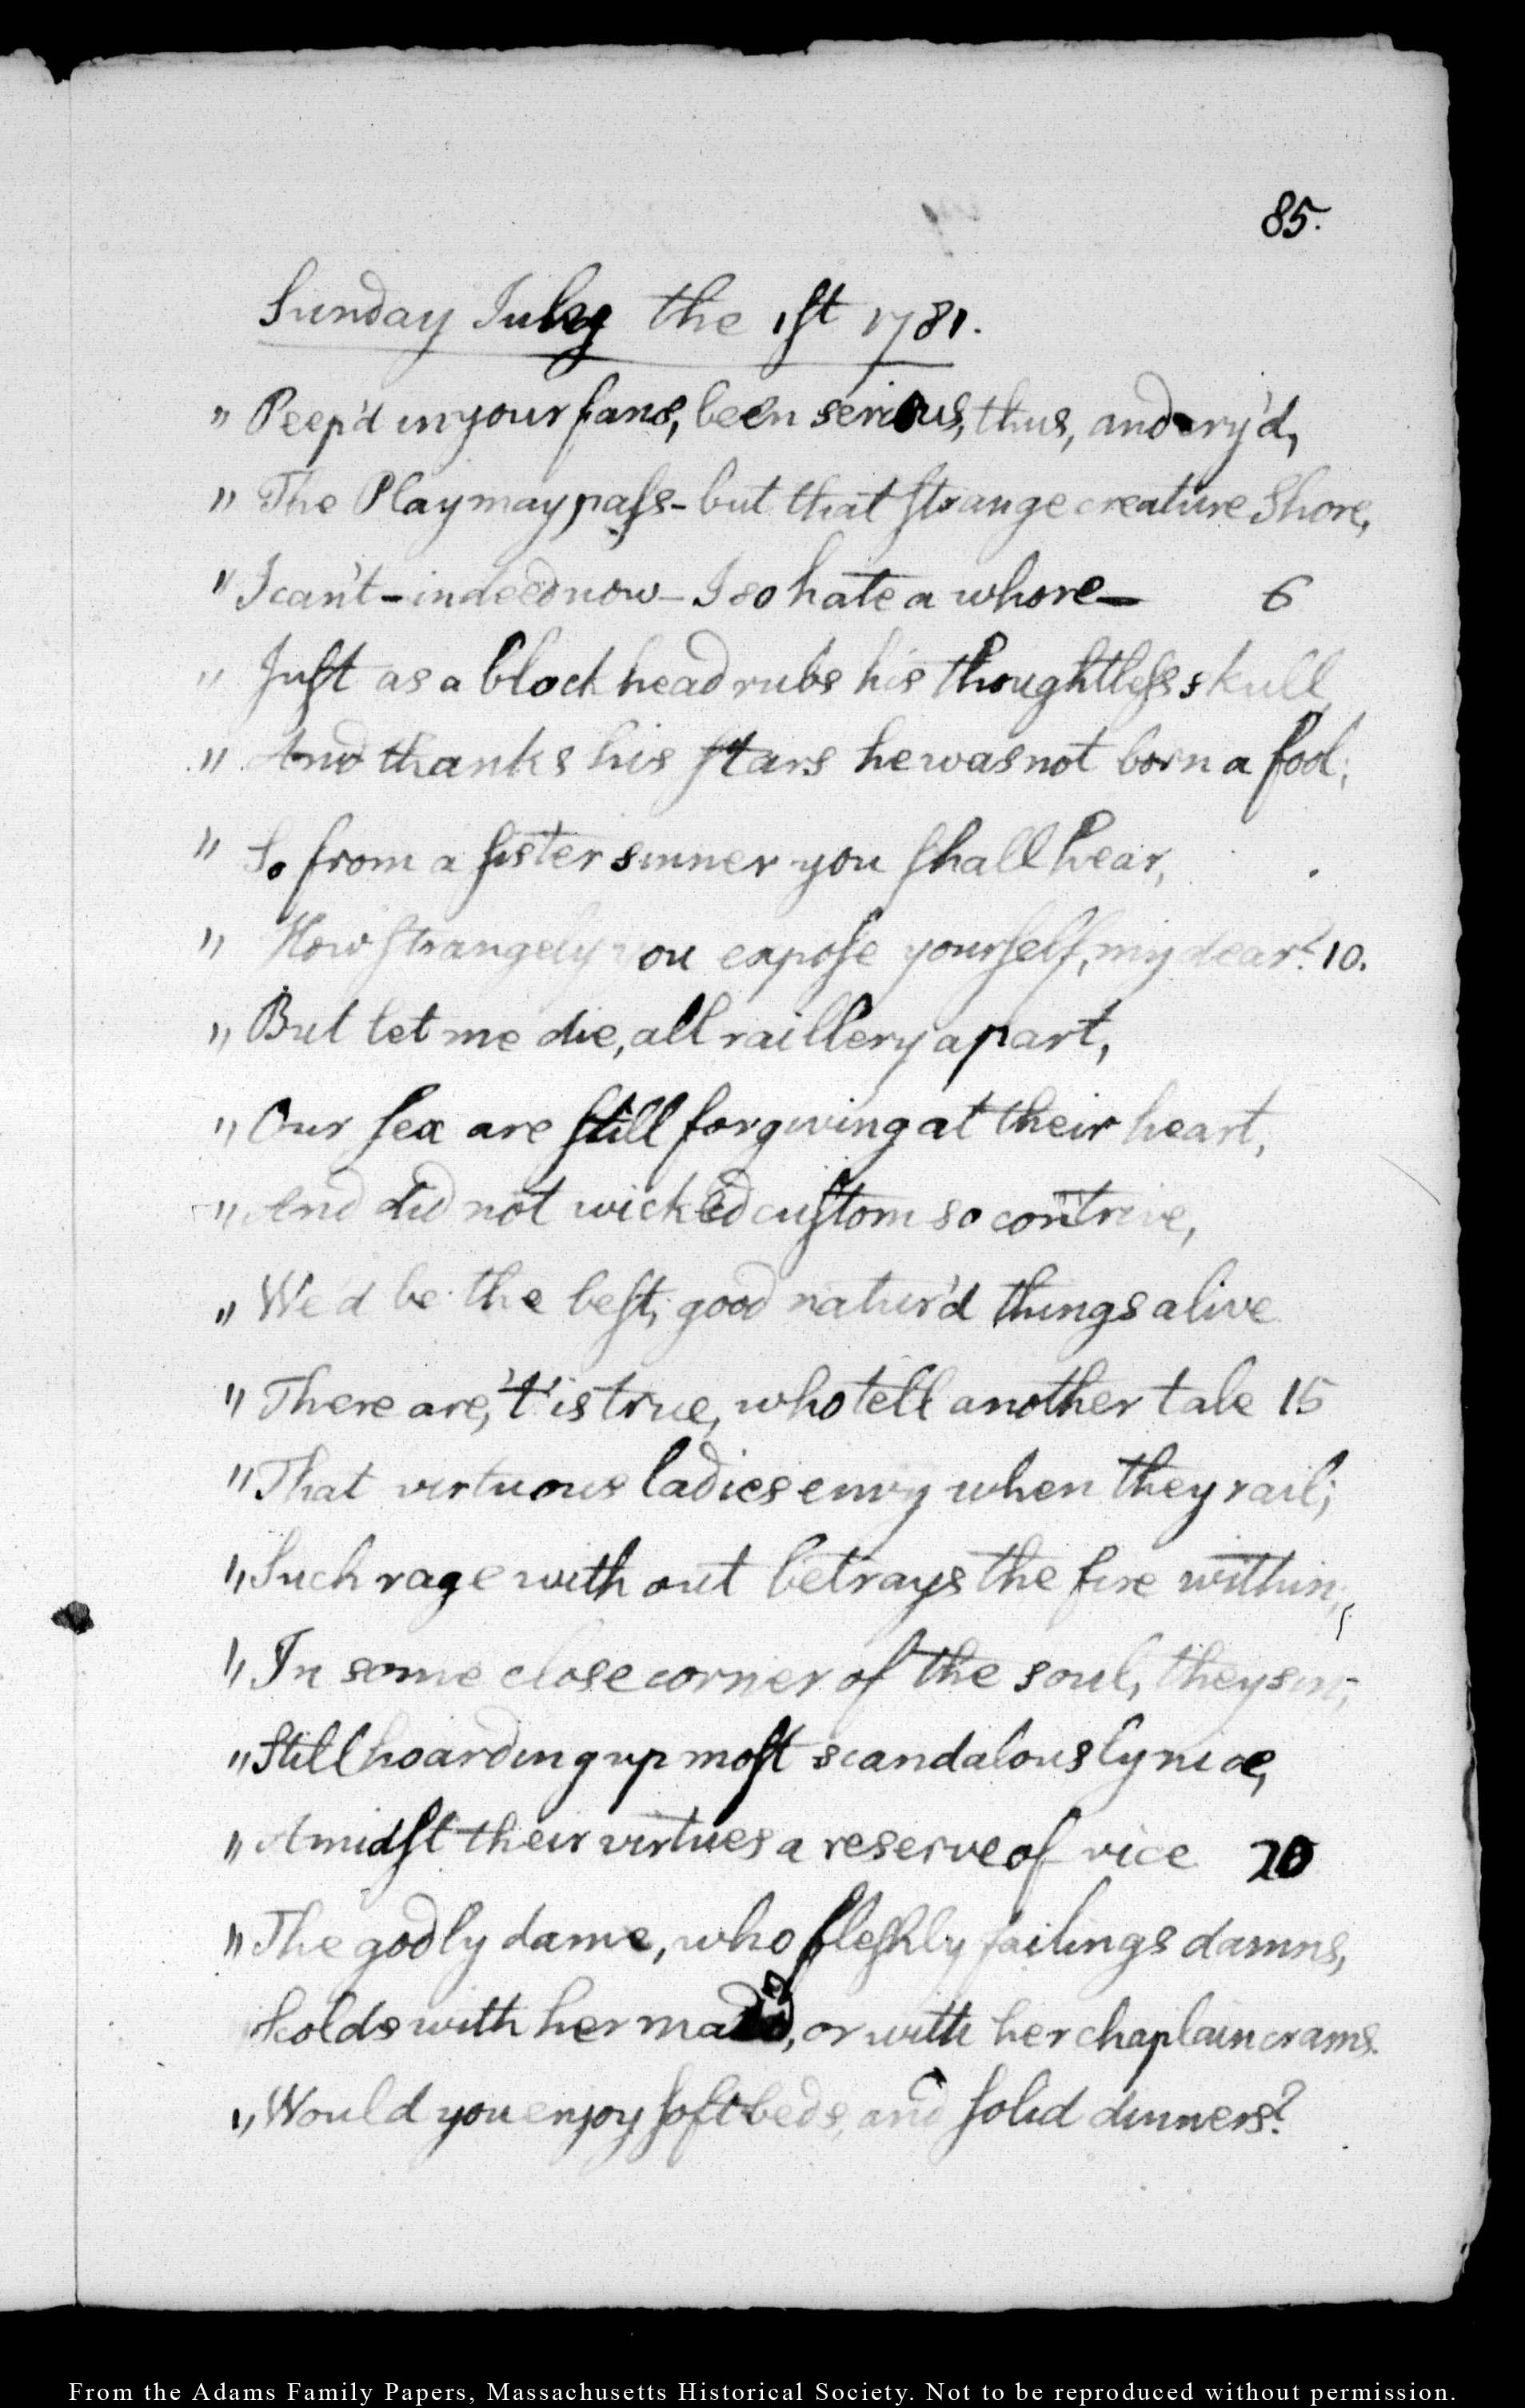 85.
Sunday July the 1st 1781.
" Peep'd in your fans, been serious, thus, and cry'd,
" The Play may pass - but that strange creature Shore,
" I can't - indeed now - I so hate a whore — 6
" Just as a blockhead rubs his thoughtless skull,
" And thanks his stars he was not born a fool;
" So from a sister sinner you shall hear,
" How strangely you expose yourself, my dear? 10.
" But let me die, all raillery apart,
" Our sex are still forgiving at their heart,
" And did not wicked custom so contrive,
" We'd be the best, good natur'd things alive
" There are, 't'is true, who tell another tale 15
" That virtuous ladies envy when they rail;
" Such rage without betrays the fire within;
" In some close corner of the soul, they sin;
" Still hoarding up most scandalously nice,
" Amidst their virtues a reserve of vice 20
" The godly dame, who fleshly failings damns,
Scolds with her maid, or with her chaplain crams.
" Would you enjoy soft beds, and solid dinners?
From the Adams Family Papers, Massachusetts Historical Society. Not to be reproduced without permission.